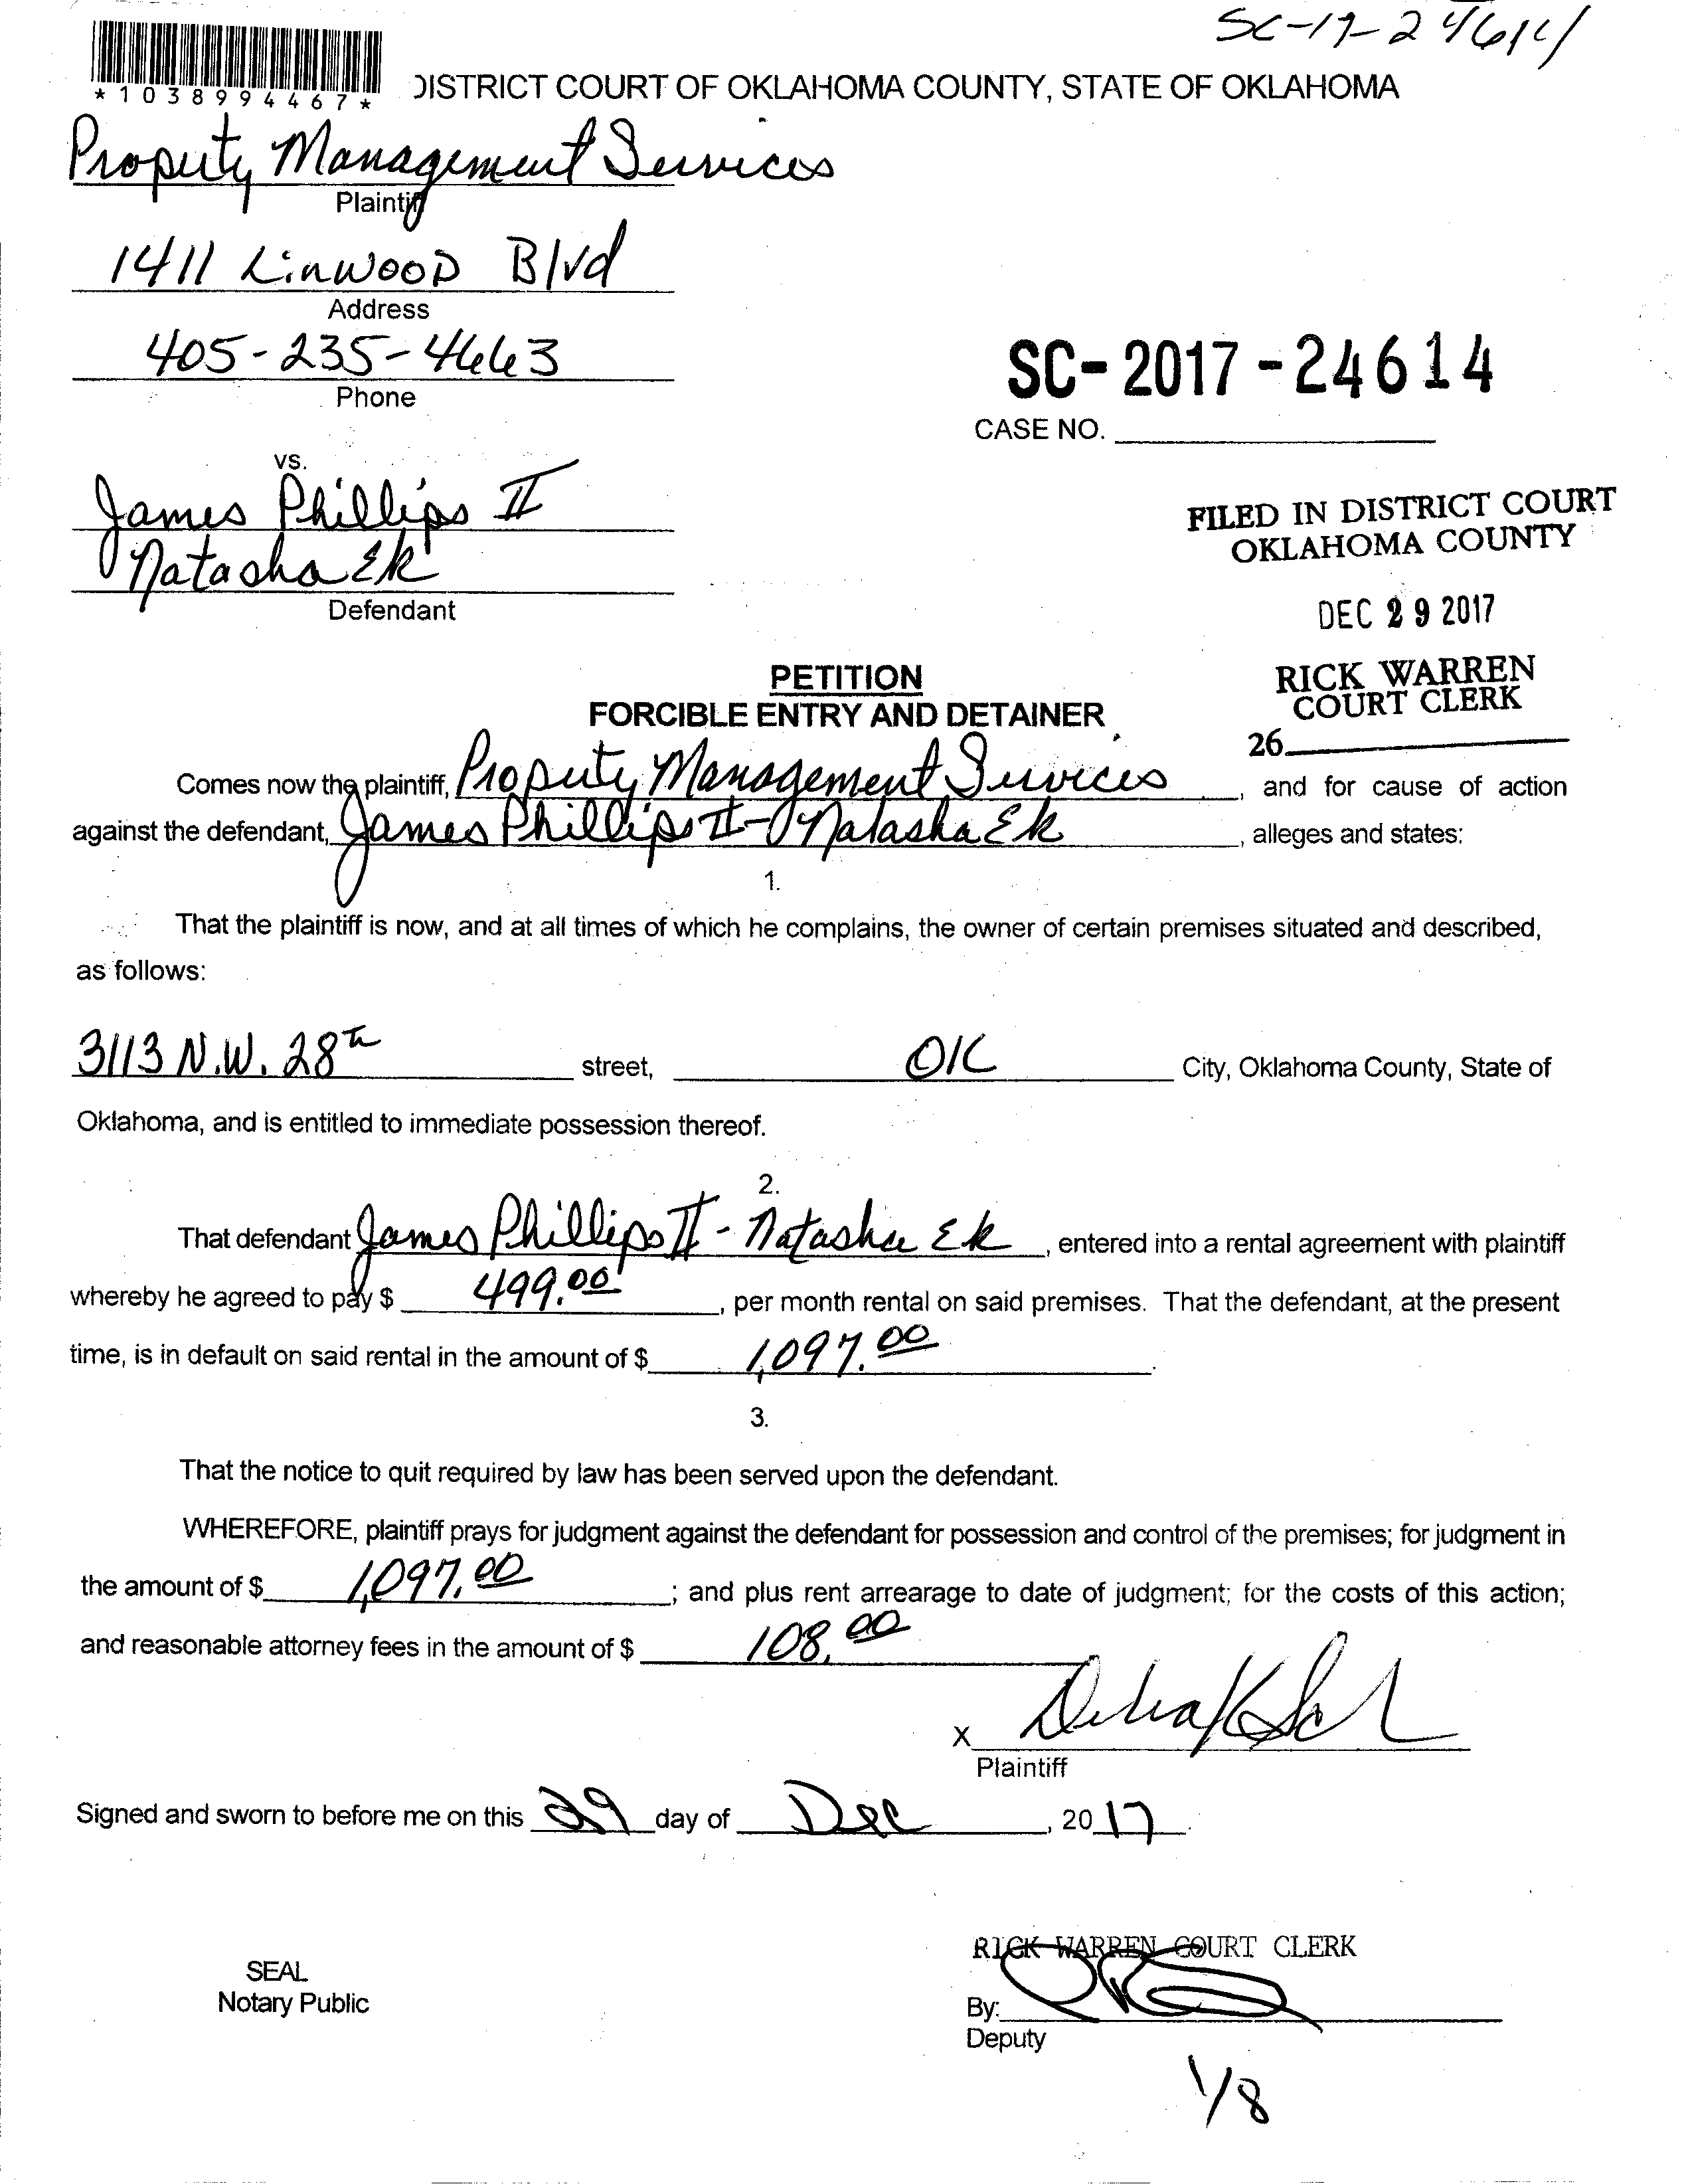 SC-17-24614
*1038994467*
DISTRICT COURT OF OKLAHOMA COUNTY, STATE OF OKLAHOMA
Property Management Services
Plaintiff
1411 Linwood Blvd
Address
405-235-4663
Phone
SC-2017-24614
CASE NO.
vs.
James Phillips II
Natasha Ek
Defendant
FILED IN DISTRICT COURT
OKLAHOMA COUNTY
DEC 29 2017
RICK WARREN
COURT CLERK
26
PETITION
FORCIBLE ENTRY AND DETAINER
Comes now the plaintiff, Property Management Services, and for cause of action
against the defendant, James Phillips II - Natasha Ek, alleges and states:
1.
That the plaintiff is now, and at all times of which he complains, the owner of certain premises situated and described,
as follows:
3113 N.W. 28th street, OK City, Oklahoma County, State of
Oklahoma, and is entitled to immediate possession thereof.
2.
That defendant James Phillips II - Natasha Ek, entered into a rental agreement with plaintiff
whereby he agreed to pay $ 499.00, per month rental on said premises. That the defendant, at the present
time, is in default on said rental in the amount of $ 1,097.00.
3.
That the notice to quit required by law has been served upon the defendant.
WHEREFORE, plaintiff prays for judgment against the defendant for possession and control of the premises; for judgment in
the amount of $ 1,097.00; and plus rent arrearage to date of judgment; for the costs of this action;
and reasonable attorney fees in the amount of $ 108.00
X
Plaintiff
Signed and sworn to before me on this 29 day of Dec, 2017.
SEAL
Notary Public
RICK WARREN COURT CLERK
By:
Deputy
1/8